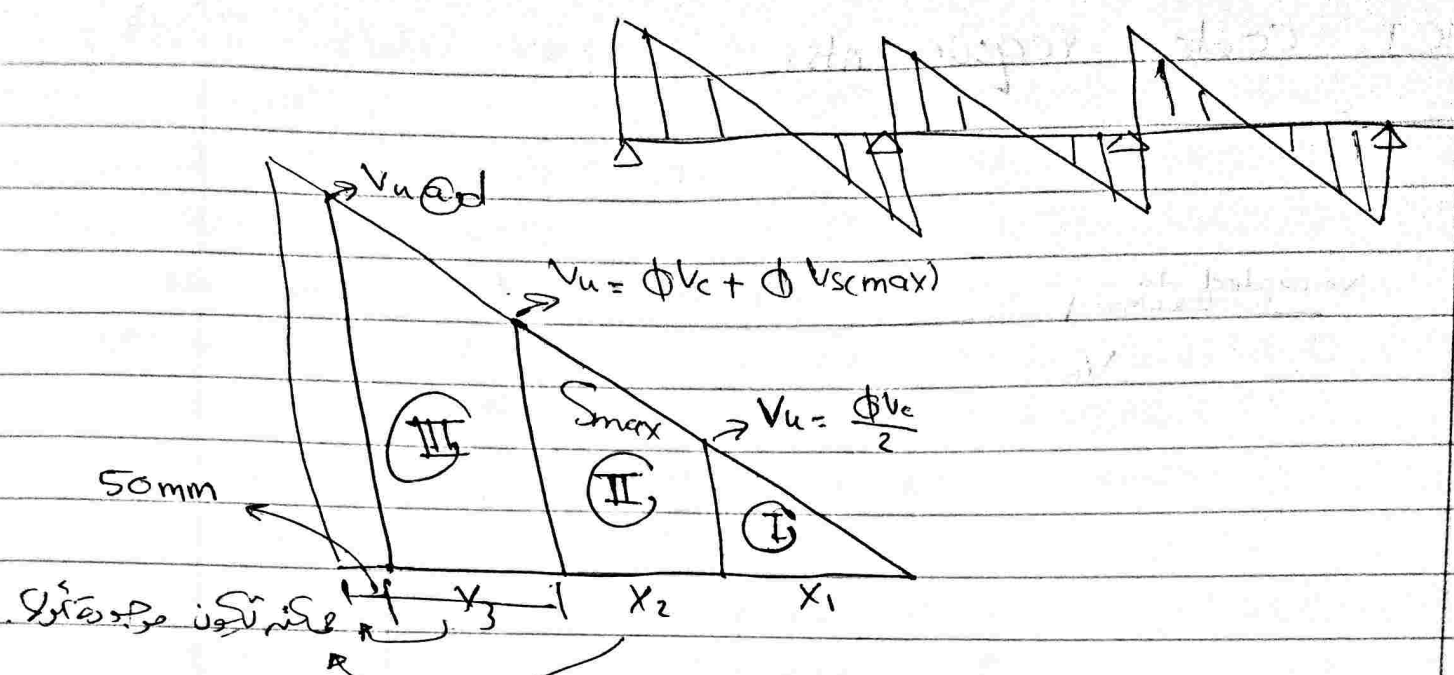 Vu@d
Vu = ϕVc + ϕ Vs(max)
Smax
Vu = ϕVc / 2
III
II
I
50mm
X3 X2 X1
ممكن تكون موجودة أو لا.